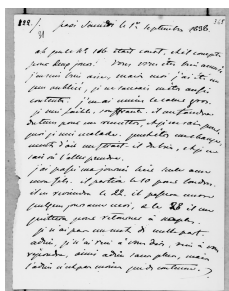 paris Samedi le 1er Septembre 1838.
ah que le No 186 était court, et il compte
pour deux jours! vous vous êtes bien amusé
j'en suis bien aise, mais moi j'ai été un
peu oubliée, je ne saurais m'être
contente. j'en ai le cœur gros.
je suis faible, souffrante. il me faudra
du tems pour me remettre, et je ne sais pas
que je suis malade.
moitié s'il était du bien, et je ne
sais où l'aller prendre.
j'ai passé ma journée hier, seule avec
mon fils. il partira le 10 pour Londres.
il en reviendra le 22. il passera encore
quelques jours avec moi, & le 28 il me
quittera pour retourner à Naples.
je n'ai pas un mot de nulle part.
adieu, je n'ai rien à vous dire, rien à vous
répondre, ainsi adieu sans plus, mais
l'adieu n'est pas moins que de coutume.